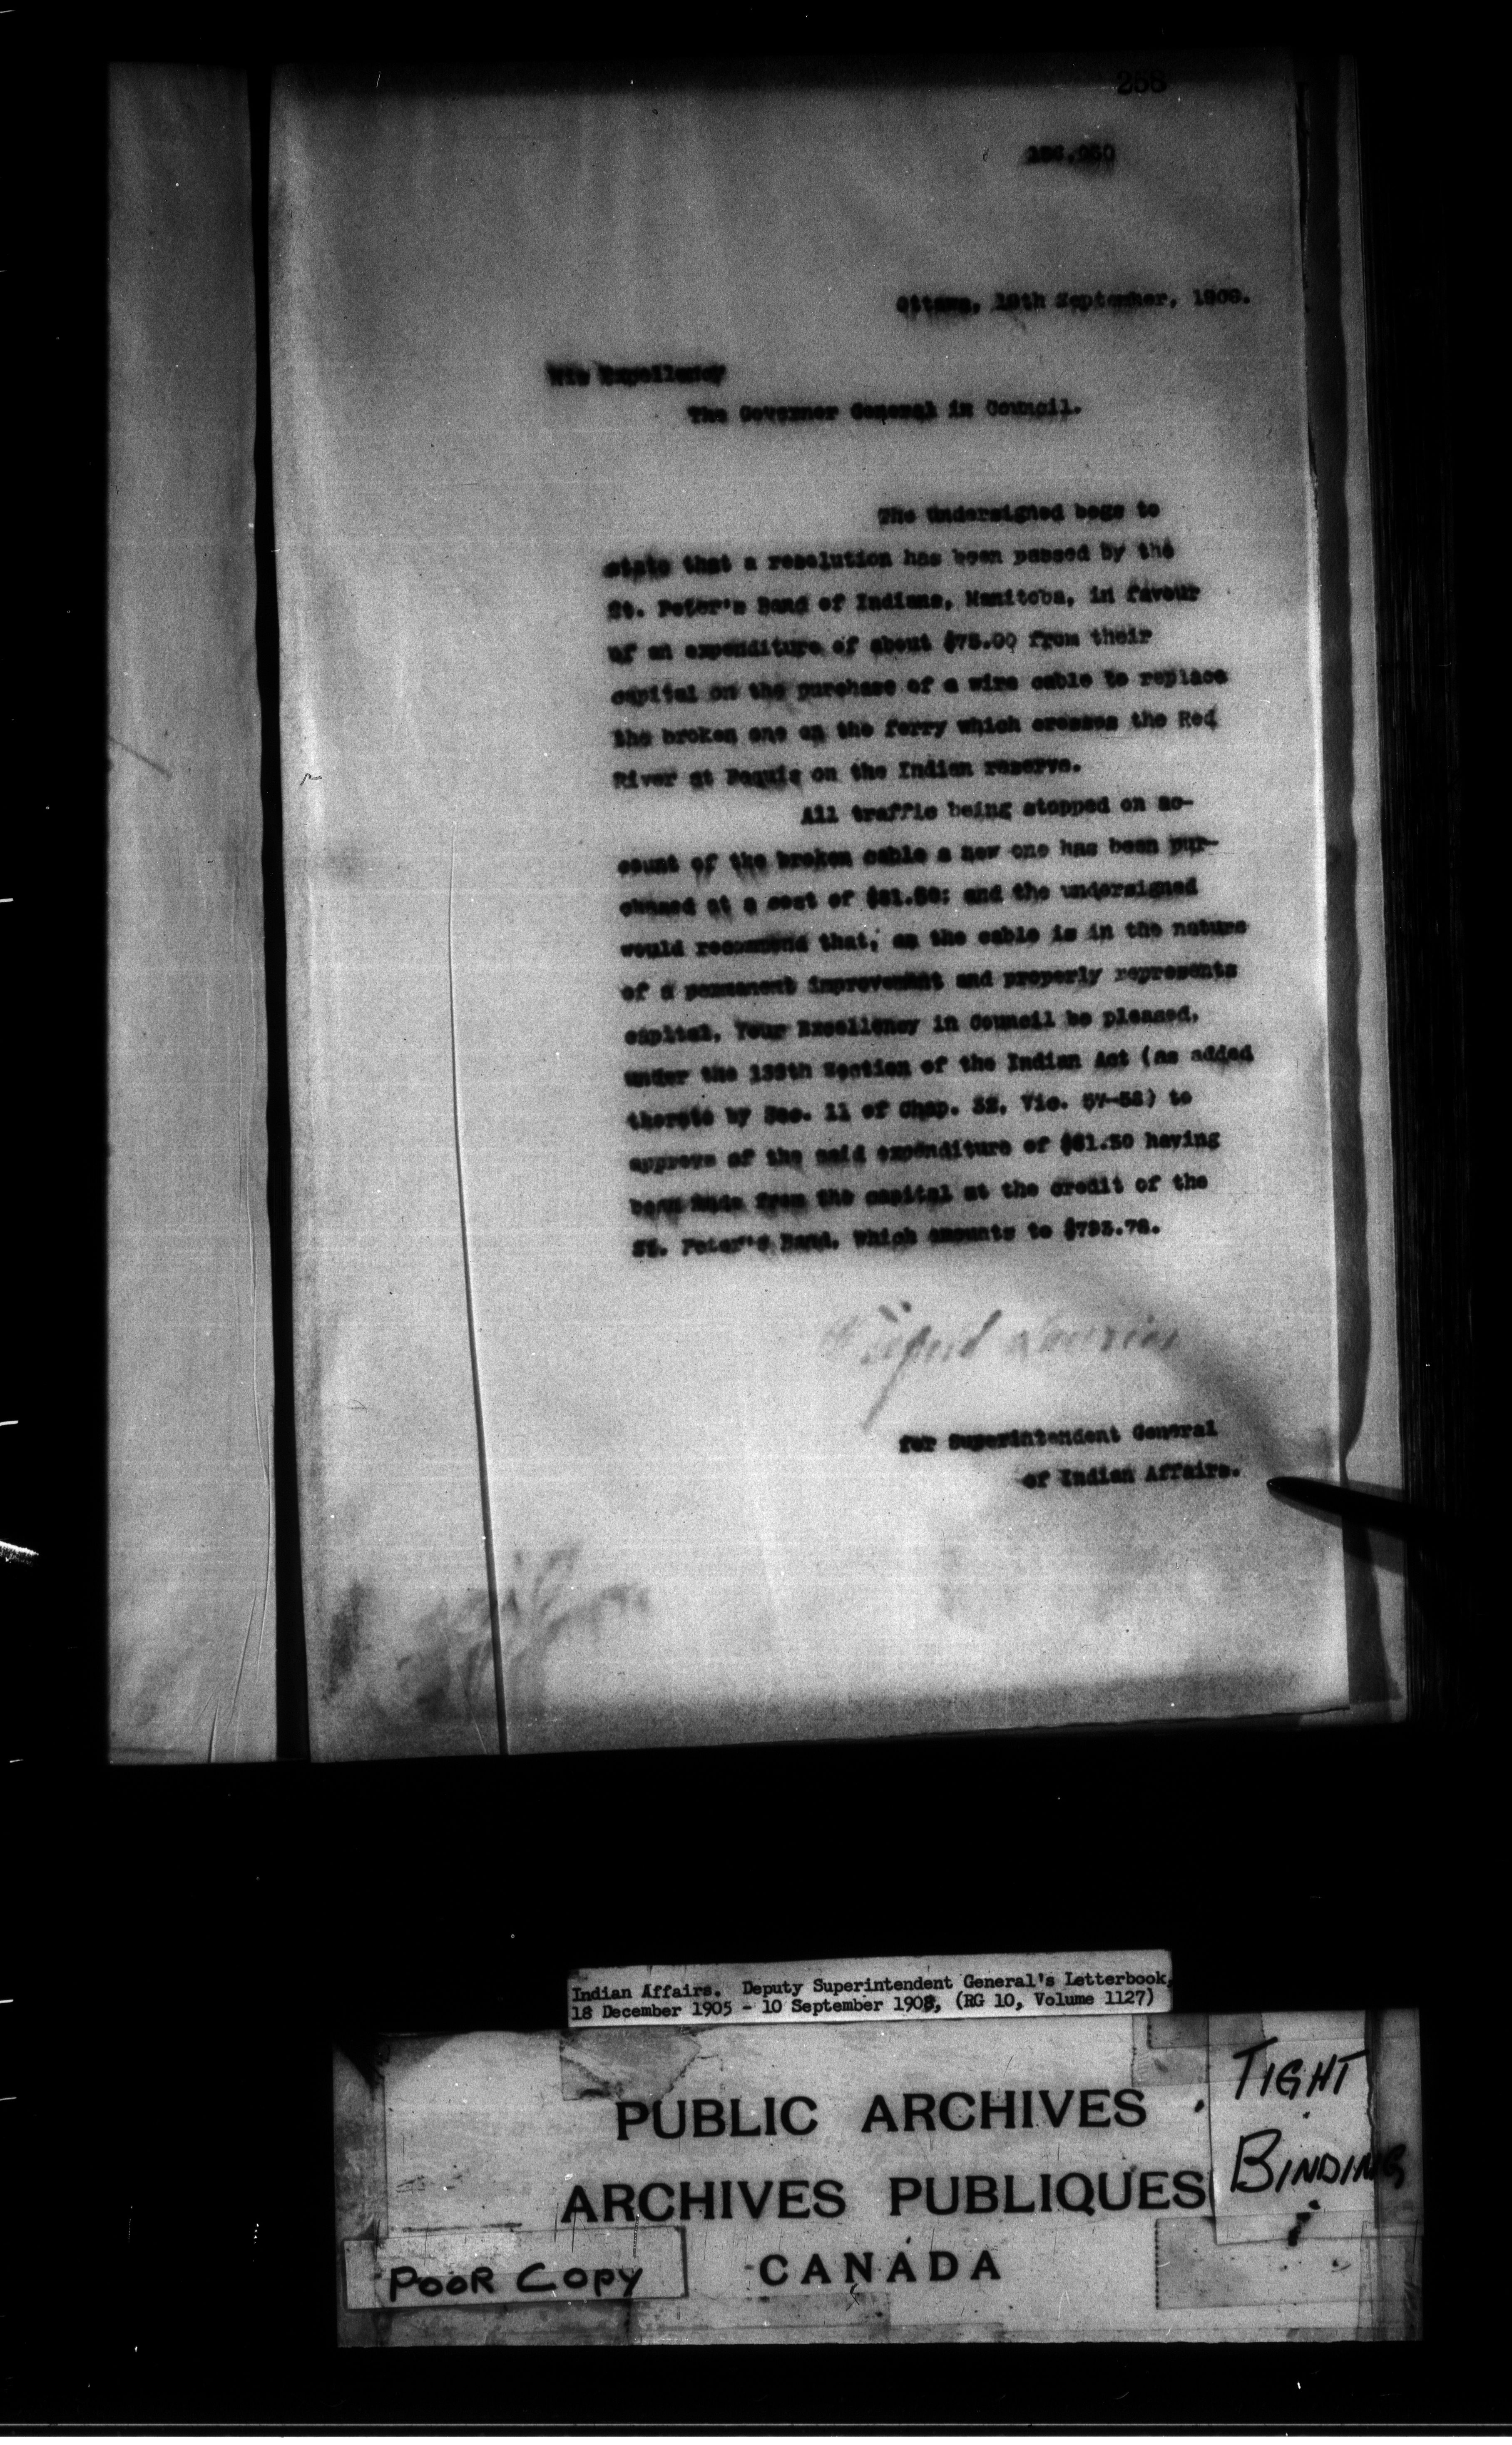 258
Ottawa, 19th September, 1906.
His Excellency
The Governor General in Council.
The Undersigned begs to
state that a resolution has been passed by the
St. Peter's Band of Indians, Manitoba, in favour
of an expenditure of about $75.00 from their
capital on the purchase of a wire cable to replace
the broken one on the ferry which crosses the Red
River at Peguis on the Indian reserve.
All traffic being stopped on ac-
count of the broken cable a new one has been pur-
chased at a cost of and the undersigned
would recommend that, as the cable is in the nature
of a permanent improvement and properly represents
capital, Your Excellency in Council be pleased,
under the 139th Section of the Indian Act (as added
thereto by Sec. 11 of Chap. 32, Vic. 57-58) to
approve of the said expenditure of having
been made from the capital at the credit of the
St. Peter's Band, which amounts to $793.78.
Wilfrid Laurier
for Superintendent General
of Indian Affairs.
Indian Affairs. Deputy Superintendent General's Letterbook,
18 December 1905 - 10 September 1908, (RG 10, Volume 1127)
PUBLIC ARCHIVES
ARCHIVES PUBLIQUES
CANADA
TIGHT
BINDING
POOR COPY